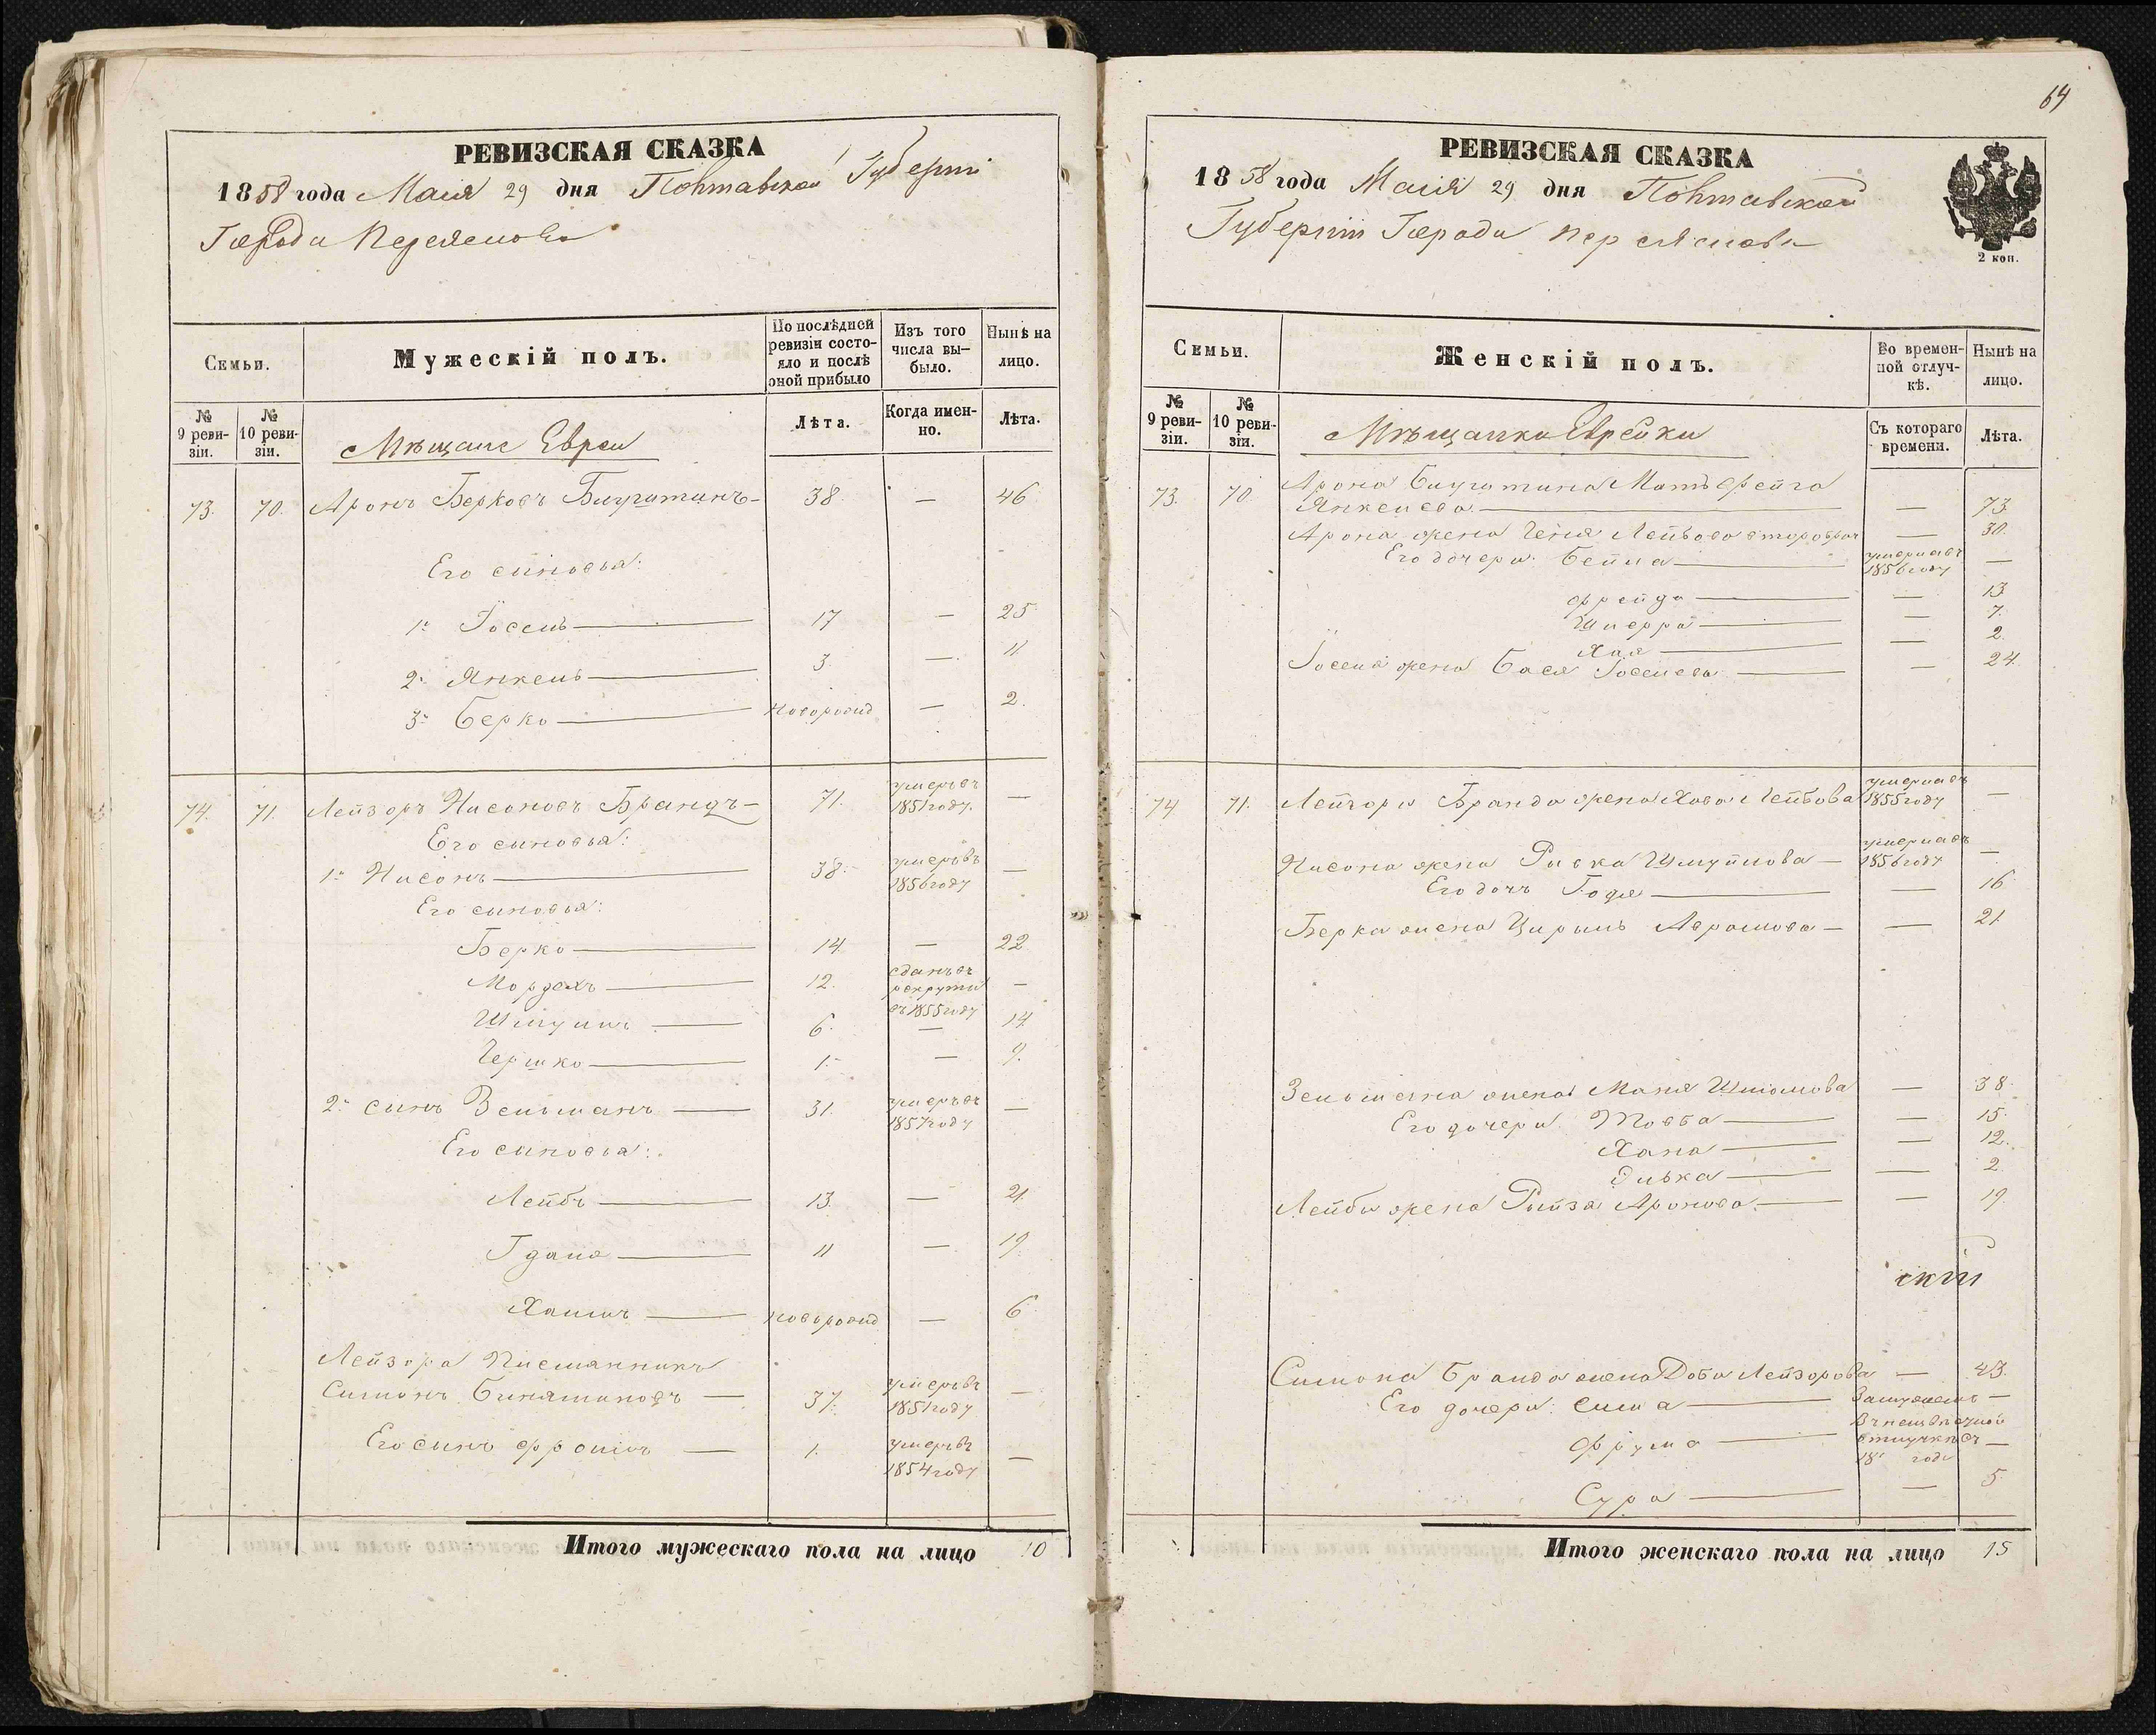 РЕВИЗСКАЯ СКАЗКА
1858 года Маія 29 дня Полтавской Губерніи
Города Переяслова
Семьи.
Мужескій полъ.
По послѣдней ревизіи состояло и послѣ оной прибыло
Изъ того числа вы-было.
Нынѣ на лицо.
№ 9 реви-зіи.
№ 10 реви-зіи.
Мѣщане Евреи
Лѣта.
Когда имен-но.
Лѣта.
73. 70. Аронъ Берковъ 38 — 46
Его сыновья:
1й Іосель 17 — 25
2й Янкель 3. — 11
3й Берко новорожд — 2.
74. 71. Лейзоръ Нисоновъ Брандъ 71. умеръ въ 1851 году. —
Его сыновья:
1й Нисонъ 38. умеръ въ 1856 году —
Его сыновья:
Берко 14 — 22
Мордехъ 12. сданъ въ рекруты въ 1855 году —
Шмуль 6. — 14
Гершко 1. — 9.
2й сынъ Зельманъ 31. умеръ въ 1857 году —
Его сыновья:
Лейбъ 13. — 21.
Гдаль 11 — 19.
Хаимъ новорожд — 6
Лейзора Племянникъ
Симонъ Биняминовъ 37. умеръ въ 1851 году —
Его сынъ Фроимъ 1. умеръ въ 1854 году —
Итого мужескаго пола на лицо 10
64
РЕВИЗСКАЯ СКАЗКА
1858 года Маія 29 дня Полтавской
Губерніи Города Переяслова
2 коп.
Семьи.
Женскій полъ.
Во времен-ной отлуч-кѣ.
Нынѣ на лицо.
№ 9 реви-зіи.
№ 10 реви-зіи.
Мѣщанки Еврейки
Съ котораго времени.
Лѣта.
73. 70. Арона Мать Фейга
Янкелева. — 73.
Арона жена Геня Лейбова второбрач — 30.
Его дочери: Бейла умерла въ 1856 году —
Фрейда — 13
Шифра — 7.
Хая — 2.
Іоселя жена Бася Іоселева — 24.
74 71. Лейзора Бранда жена Хава Лейбова умерла въ 1855 году —
Нисона жена Ривка Шмуйлова умерла въ 1856 году —
Его дочь Годя — 16
Берка жена Цирыль Аврамова — 21
Зельмана жена Маня Шлюмова — 38.
Его дочери: Товба — 15.
Хана — 12.
Ривка — 2
Лейбы жена Рыйза Аронова. — 19.
скій
Симона Бранда жена Доба Лейзорова — 43.
Его дочери: Сима Замужемъ —
Фрума Въ неизвѣстной отлучкѣ съ 18 года —
Сура — 5.
Итого женскаго пола на лицо 15